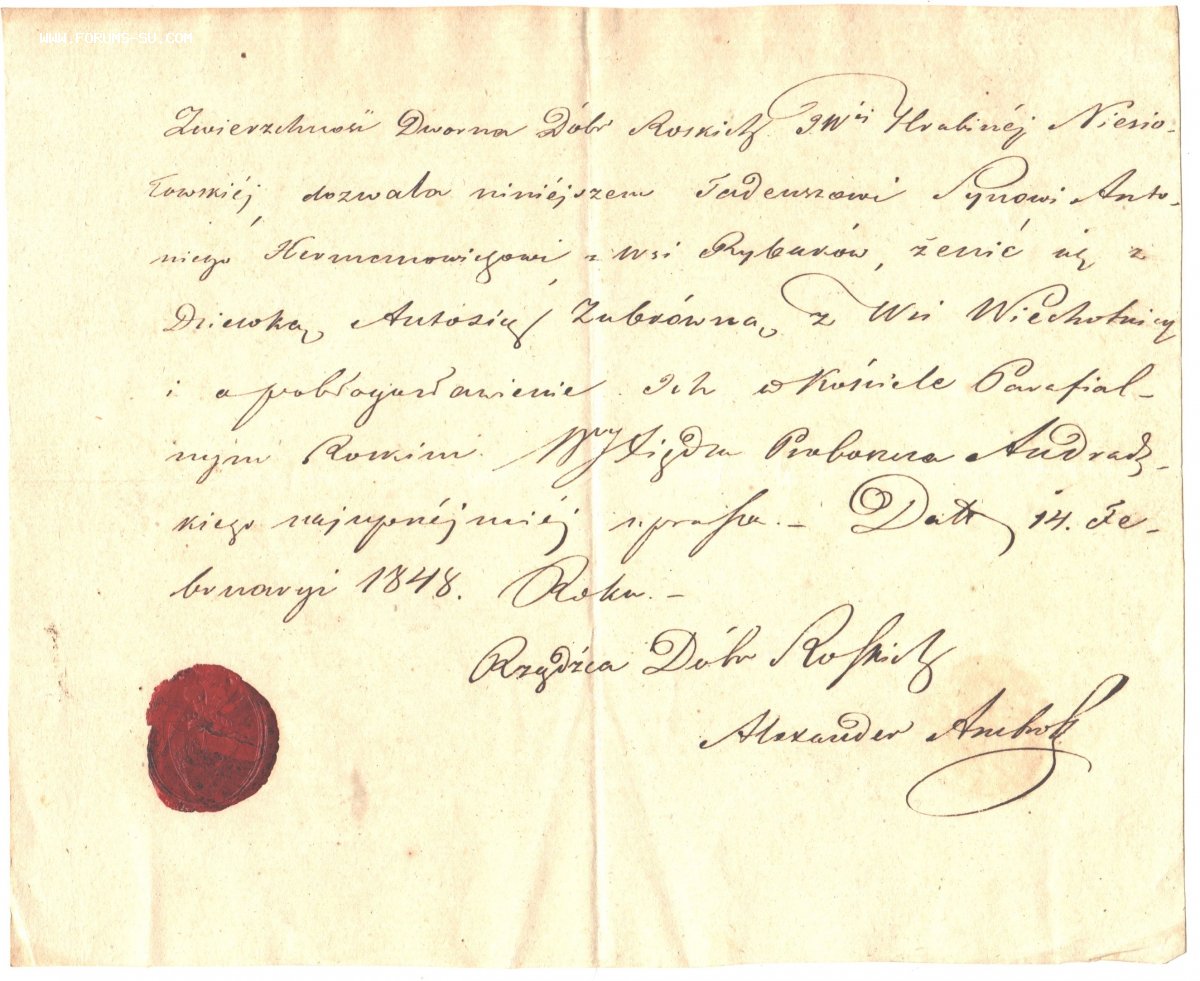 WWW.FORUMS-SU.COM
Zwierzchność Dworna Dóbr Roskich JWéj Hrabinéj Niesio-
łowskiéj, dozwala niniéjszem Tadeuszowi Synowi Anto-
niego Hermanowiczowi z Wsi Rybarów, żenić się z
Dziewką Antosią Zubrówną, z Wsi Wiechotnicy
i o pobłogosławienie Ich w Kościele Parafial-
nym Roskim. Xiędza Proboszcza Andradz-
kiego najuprzéjmiéj uprasza. – Datt 14. Fe-
bruaryi 1848. Roku. –
Rządźca Dóbr Roskich
Alexander